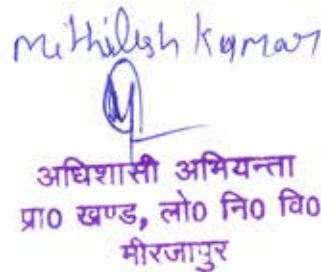 Mithilesh Kumar
अधिशासी अभियन्ता
प्रा0 खण्ड, लो0 नि0 वि0
मीरजापुर